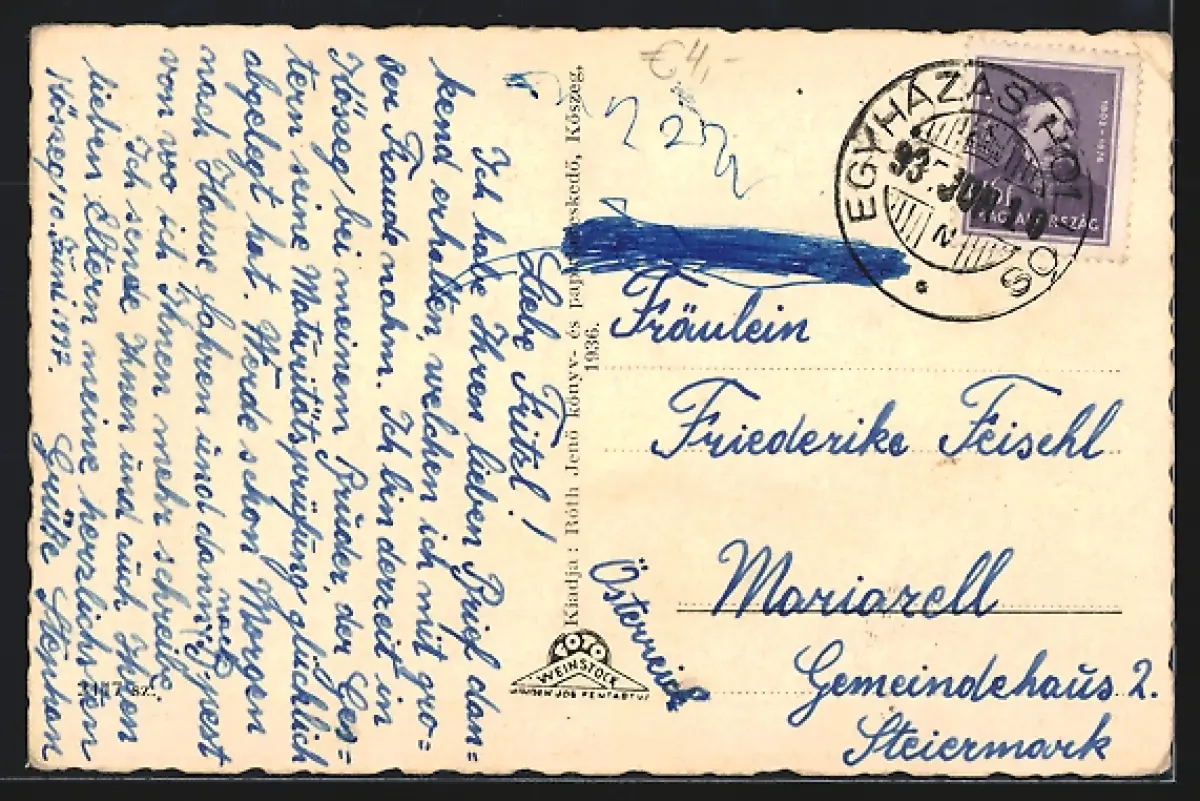 Liebe Fritzl!
Ich habe Ihren lieben Brief dan=
kend erhalten, welchen ich mit gro=
ser Fraude nahm. Ich bin derzeit in
Köseg bei meinem Brüder, der Ges=
tern seine Matüritätsprüfung glücklich
abgelegt hat. Werde schon Morgen
nach Hause fahren ünd dann nach pest
von wo ich Ihnen mehr schreibe.
Ich sende Ihnen ünd auch Ihren
lieben Eltern meine herzlichsten
Grüße Stephan
Köszeg, 10. Jüni 1937.
Kiadja: Róth Jenő könyv- és kereskedő, Kőszeg,
1936.
WEINSTOCK
€ 4,-
EGYHÁZAS
MAGYARORSZÁG
Fräulein
Friederike Feischl
Mariazell
Gemeindehaüs 2.
Steiermark
Österreich